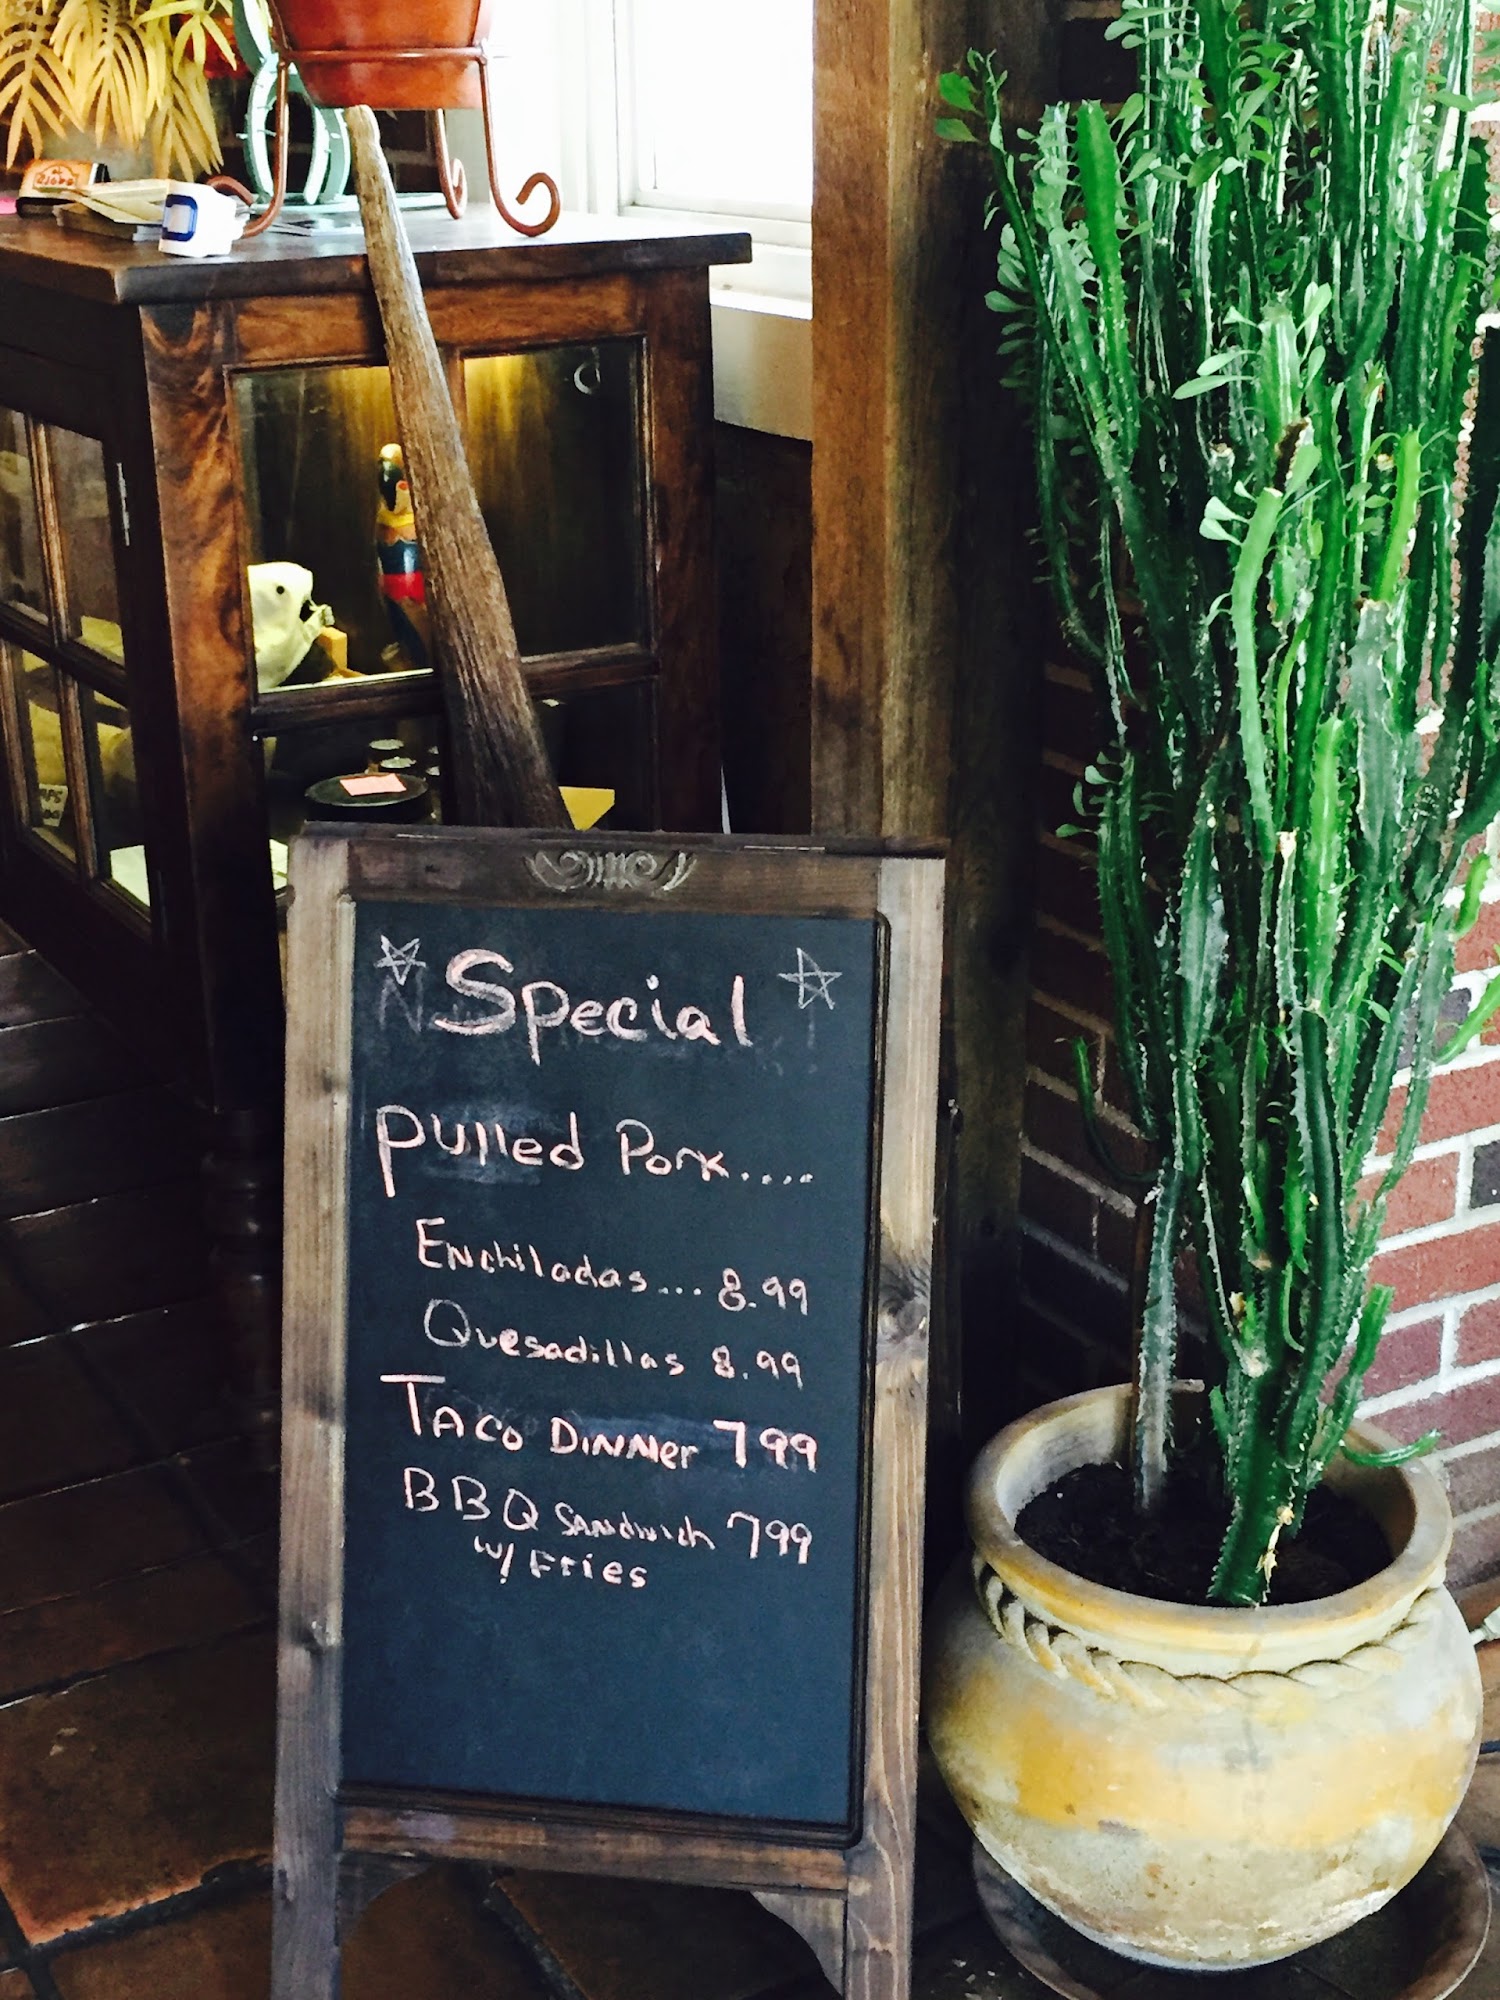 Special
Pulled Pork....
Enchiladas... 8.99
Quesadillas 8.99
Taco Dinner 7 99
BBQ Sandwich 7 99
w/ Fries